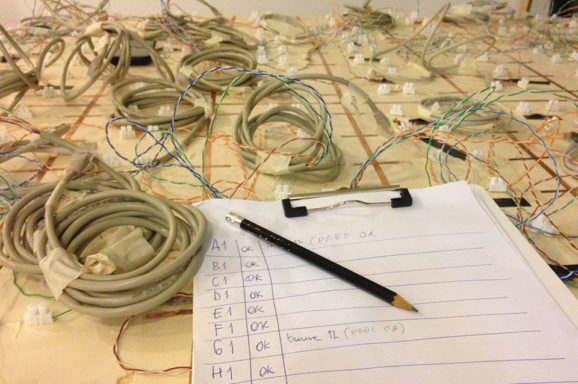 A1 OK (PARE OK
B1 OK
C1 OK
D1 OK
E1 OK
F1 OK
G1 OK trame 12 (PARE OK)
H1 OK